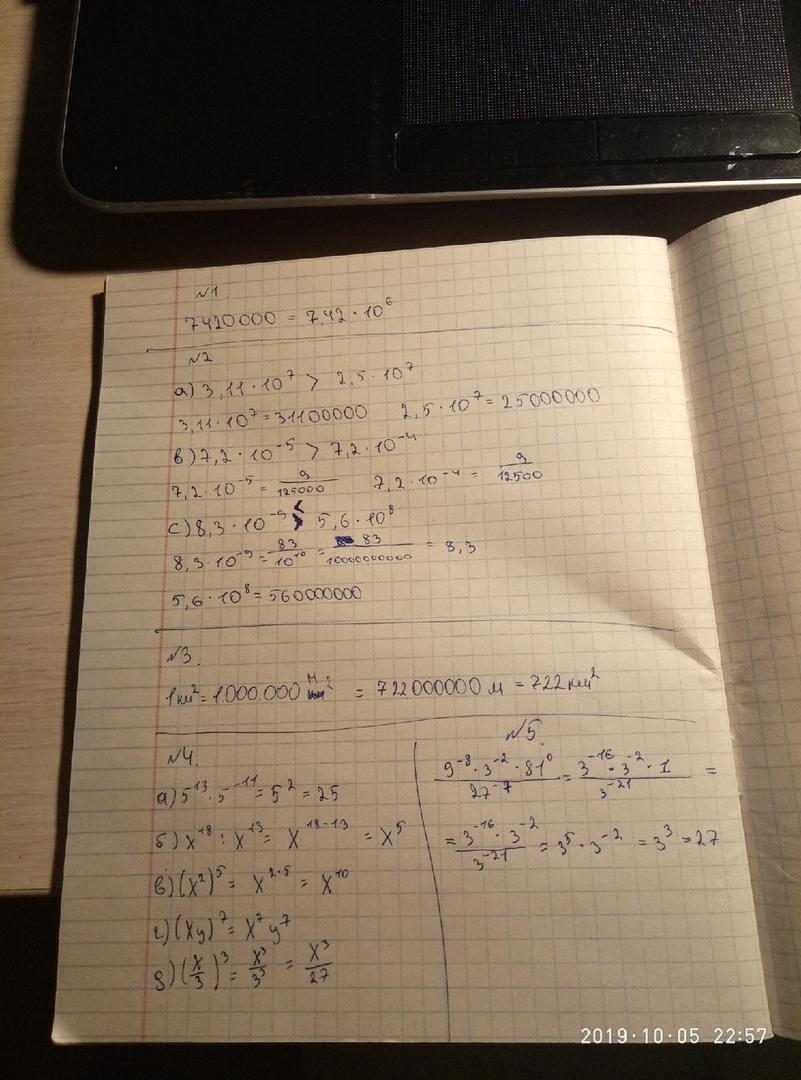 №1.
7420000 = 7,42 · 10⁶
№2
а) 3,11 · 10⁷ > 2,5 · 10⁷
3,11 · 10⁷ = 31100000 2,5 · 10⁷ = 25000000
в) 7,2 · 10⁻⁵ > 7,2 · 10⁻⁴
7,2 · 10⁻⁵ = 9/125000 7,2 · 10⁻⁴ = 9/12500
с) 8,3 · 10⁻⁹ < 5,6 · 10⁸
8,3 · 10⁻⁹ = 83/10¹⁰ = 83/10000000000 = 8,3
5,6 · 10⁸ = 560000000
№3.
1км² = 1.000.000 м² = 722000000 м = 722 км²
№4.
а) 5¹³ · 5⁻¹¹ = 5² = 25
б) x¹⁸ : x¹³ = x¹⁸⁻¹³ = x⁵
в) (x²)⁵ = x²·⁵ = x¹⁰
г) (xy)⁷ = x⁷y⁷
д) (x/3)³ = x³/3³ = x³/27
№5.
9⁻⁸ · 3⁻² · 81⁰/27⁻⁷ = 3⁻¹⁶ · 3⁻² · 1/3⁻²¹ =
= 3⁻¹⁶ · 3⁻²/3⁻²¹ = 3⁵ · 3⁻² = 3³ = 27
2019·10·05 22:57